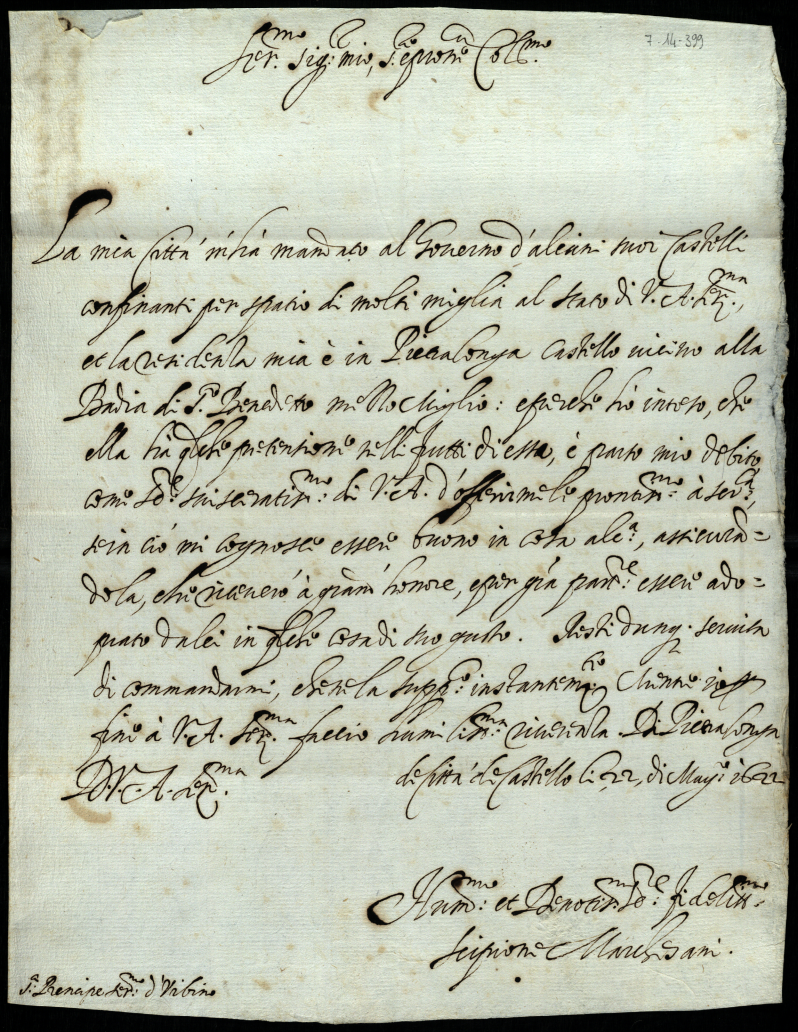 7-14-399
Ser.mo Sig.r mio, S.re e prone Col.mo
La mia Città m'hà mandato al Governo d'alcuni suoi Castelli
confinanti per spatio di molti miglia al stato di V. A. Ser.ma,
et la residenza mia è in Pietralonga Castello vicino alla
Badia di S.to Benedetto : e perche hò inteso, che
ella hà qlche pretensione nelli frutti di essa, è parso mio debito,
come suisceratis.mo di V. A. d'offerirmele prontis.mo à ser.la,
se in ciò mi cognosce essere buono in cosa alc.a, assicuran=
dola, che riceverò à gran honore, e per gra essere ado=
prato da lei in qlche cosa di suo gusto. Resti dunq. servita
di commandarmi, che ne la supp.co instantem.te Mentre
fine à V. A. Ser.ma faccio humiliss.ma riverenza. Di Pietralonga
D. V. A. Ser.ma de Città de Castello li 22, di Magg.o 1622
Hum.mo et Devotis.mo S.re fideliss.mo
Scipione Marchesani.
S.r Prencipe Ser.mo d'Urbino